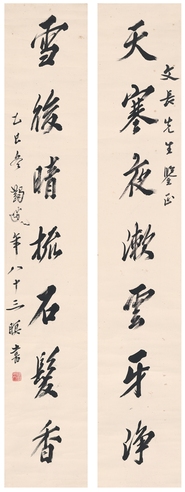 天寒夜漱雲牙淨
文長先生鑒正
雪後晴梳石髮香
乙巳冬 年八十三 書